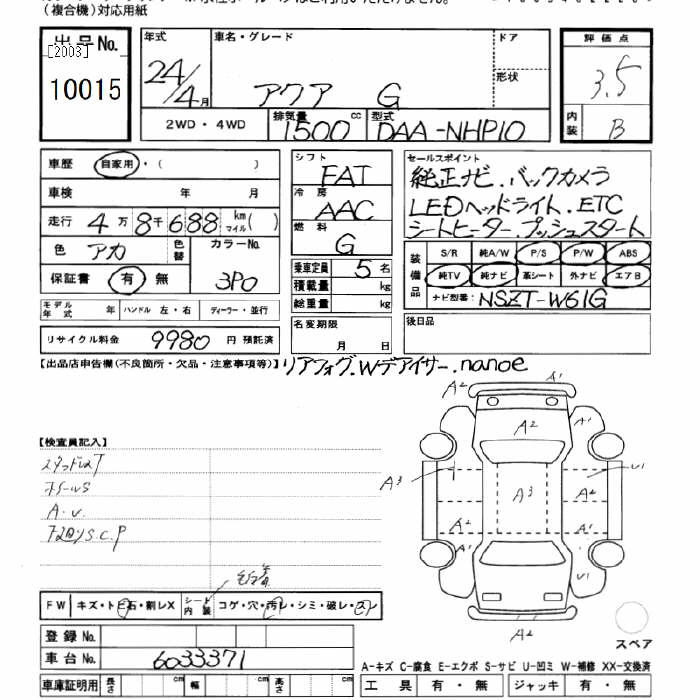 (複合機)対応用紙
出品No. [2003] 10015
年式 24/4月
車名・グレード アクア G
ドア
形状
評価点 3.5
内装 B
2WD・4WD
排気量 1500cc
型式 DAA-NHP10
車歴 自家用・( )
車検 年 月
走行 4万8千688 km マイル( )
色 アカ
色替
カラーNo. 3P0
保証書 有・無
シフト FAT
冷房 AAC
燃料 G
乗車定員 5名
積載量 kg
総重量 kg
セールスポイント
純正ナビ.バックカメラ
LEDヘッドライト.ETC
シートヒーター.プッシュスタート
装備品 S/R 純A/W P/S P/W ABS
純TV 純ナビ 革シート 外ナビ エアB
ナビ型番: NSZT-W61G
モデル年式 年 ハンドル 左・右 ディーラー・並行
リサイクル料金 9980円 預託済
名変期限 月 日
後日品
【出品店申告欄(不良箇所・欠品・注意事項等)】 リアフォグ.Wデアイサー.nanoe
【検査員記入】
スタッドレスT
ホイールS
A.U.
A2 A1
A2
A3 A2 A3 A2 U1
A2 A1
A1 A1
A2 U1
A2
FW キズ・トビ石・割レX
シート内装 コゲ・穴・汚レ・シミ・破レ・スレ
登録No.
車台No. 6033371
スペア
A-キズ C-腐食 E-エクボ S-サビ U-凹ミ W-補修 XX-交換済
車庫証明用 長さ cm 幅 cm 高さ cm
工具 有・無 ジャッキ 有・無